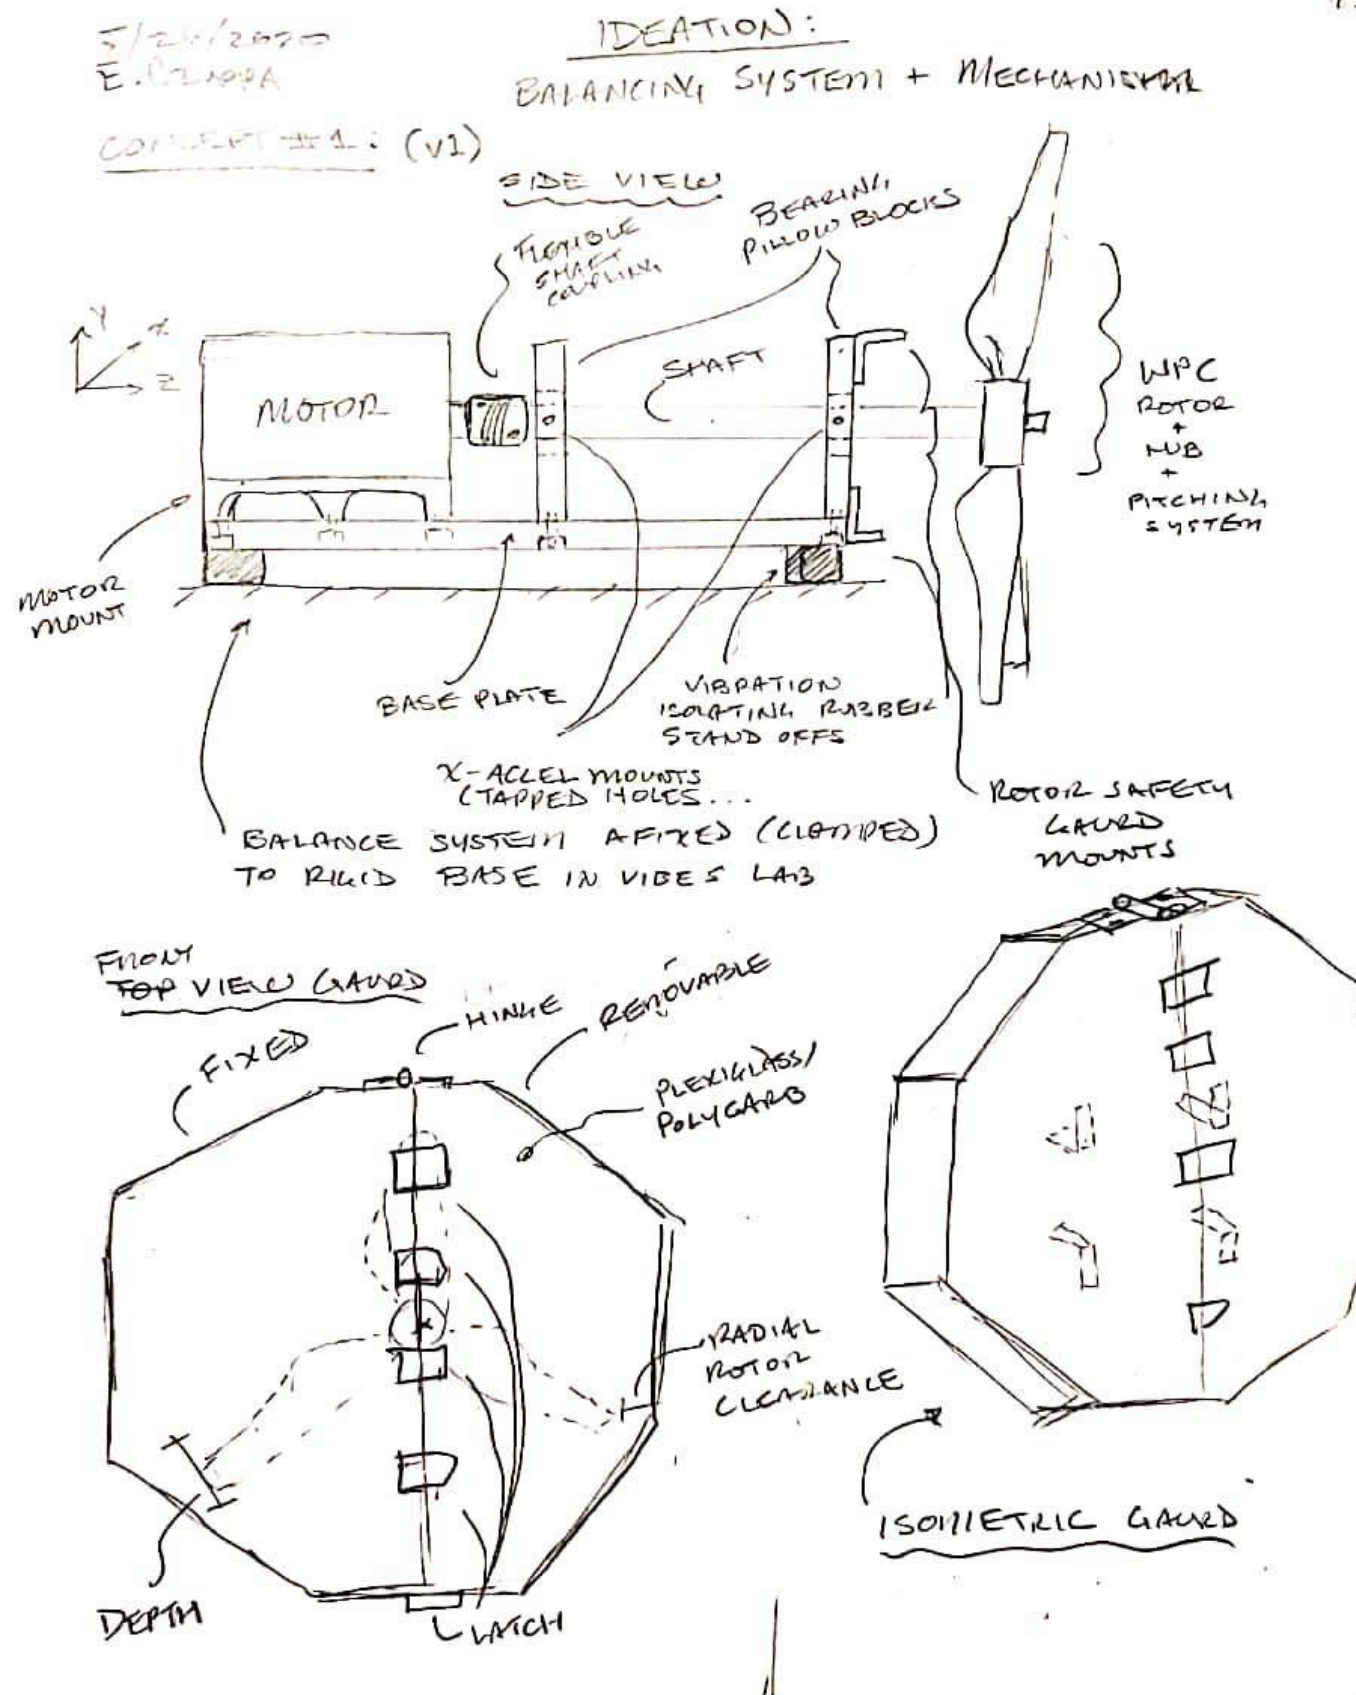 5/26/2020
IDEATION:
E.
BALANCING SYSTEM + MECHANISM
CONCEPT #1: (V1)
SIDE VIEW
BEARING
PILLOW BLOCKS
FLEXIBLE
SHAFT
COUPLING
Y
X
Z
MOTOR
SHAFT
WPC
ROTOR
+
HUB
+
PITCHING
SYSTEM
MOTOR
MOUNT
BASE PLATE
VIBRATION
ISOLATING RUBBER
STAND OFFS
X-ACCEL MOUNTS
(TAPPED HOLES...
ROTOR SAFETY
GAURD
MOUNTS
BALANCE SYSTEM AFIXED (CLAMPED)
TO RIGID BASE IN VIBES LAB
FRONT
TOP VIEW GAURD
HINGE
REMOVABLE
FIXED
PLEXIGLASS/
POLYCARB
RADIAL
ROTOR
CLEARANCE
ISOMETRIC GAURD
DEPTH
LATCH